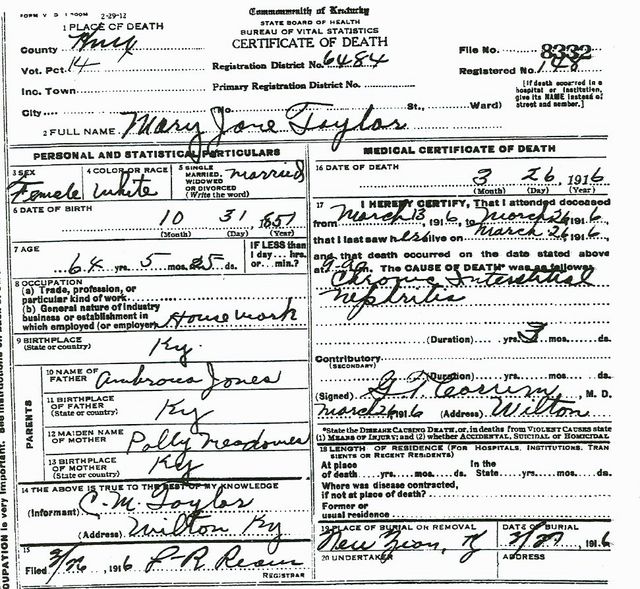 FORM V. D. 2-29-12
Commonwealth of Kentucky
STATE BOARD OF HEALTH
BUREAU OF VITAL STATISTICS
CERTIFICATE OF DEATH
1 PLACE OF DEATH
County Knox
Vot. Pct. 14
Inc. Town
City No. St., Ward)
Registration District No. 6484
Primary Registration District No.
File No. 8332
Registered No. 148
[If death occurred in a hospital or institution, give its NAME instead of street and number.]
2 FULL NAME Mary Jane Taylor
PERSONAL AND STATISTICAL PARTICULARS
3 SEX Female
4 COLOR OR RACE White
5 SINGLE MARRIED, WIDOWED OR DIVORCED (Write the word) married
6 DATE OF BIRTH 10 31, 1851
(Month) (Day) (Year)
7 AGE 64 yrs. 5 mos. 25 ds.
IF LESS than 1 day... hrs. or... min.?
8 OCCUPATION
(a) Trade, profession, or particular kind of work
(b) General nature of industry business or establishment in which employed (or employer) Housework
9 BIRTHPLACE (State or country) Ky.
PARENTS
10 NAME OF FATHER Ambrous Jones
11 BIRTHPLACE OF FATHER (State or country) Ky
12 MAIDEN NAME OF MOTHER Polly
13 BIRTHPLACE OF MOTHER (State or country) Ky
14 THE ABOVE IS TRUE TO THE BEST OF MY KNOWLEDGE
(Informant) C. M. Taylor
(Address) Wilton Ky
15
Filed 3/26, 1916
REGISTRAR
MEDICAL CERTIFICATE OF DEATH
16 DATE OF DEATH 3 26, 1916
(Month) (Day) (Year)
17 I HEREBY CERTIFY, That I attended deceased
from March 13, 1916, to March 26, 1916
that I last saw her alive on March 26, 1916,
and that death occurred on the date stated above
at The CAUSE OF DEATH* was as follows
Chronic Interstitial
Nephritis
(Duration) yrs. 3 mos. ds.
Contributory
(SECONDARY)
(Duration) yrs. mos. ds.
(Signed) M. D.
March 26 1916 (Address) Wilton
*State the DISEASE CAUSING DEATH, or, in deaths from VIOLENT CAUSES state
(1) MEANS OF INJURY; and (2) whether ACCIDENTAL, SUICIDAL OR HOMICIDAL
18 LENGTH OF RESIDENCE (FOR HOSPITALS, INSTITUTIONS, TRANSIENTS OR RECENT RESIDENTS)
At place of death yrs. mos. ds. In the State yrs. mos. ds.
Where was disease contracted, if not at place of death?
Former or usual residence
19 PLACE OF BURIAL OR REMOVAL New Zion, Ky
DATE OF BURIAL 3/27, 1916
20 UNDERTAKER
ADDRESS
OCCUPATION is very important.